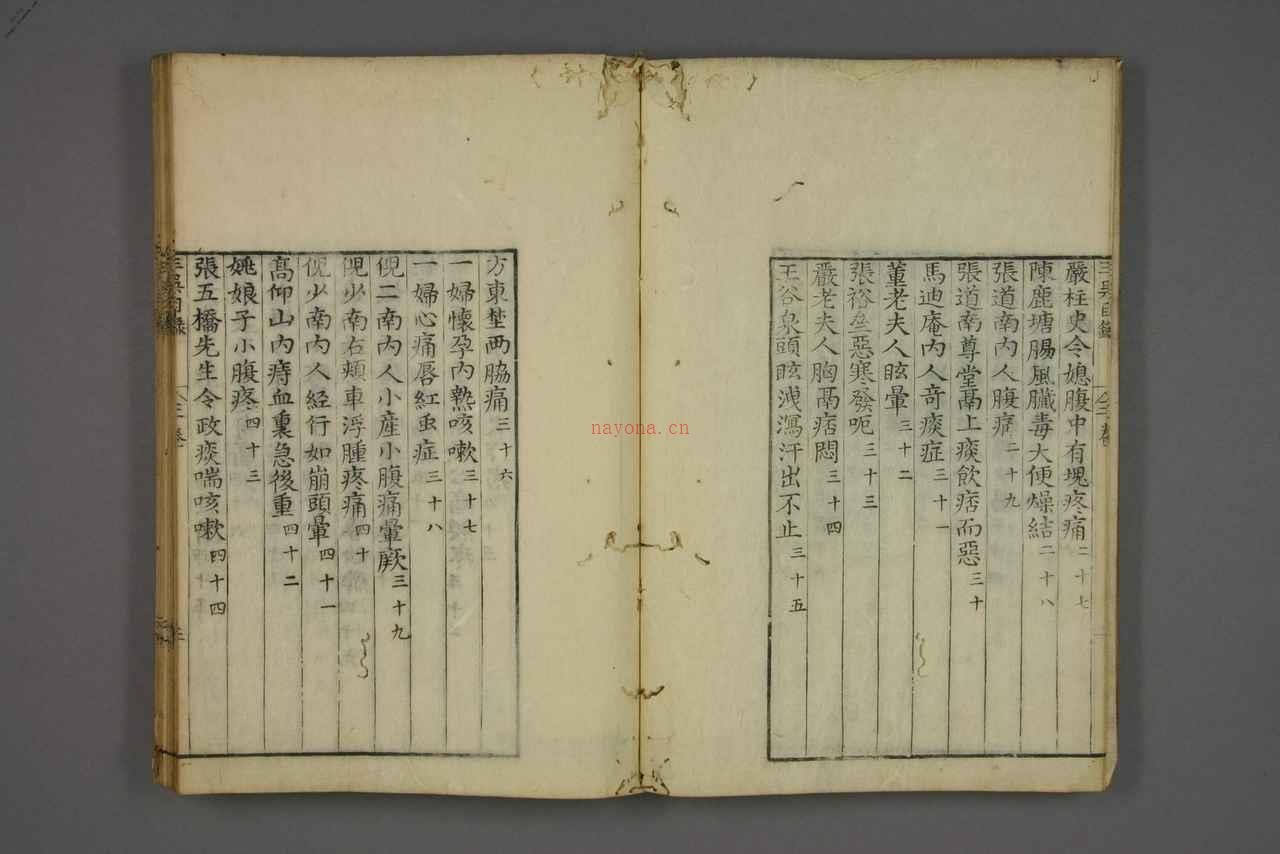 三吳目錄 三卷
嚴柱史令媳腹中有塊疼痛二十七
陳鹿塘腸風臟毒大便燥結二十八
張道南內人腹痛二十九
張道南尊堂鬲上痰飲痞而惡三十
馬迪庵內人奇痰症三十一
董老夫人眩暈三十二
張裕垒惡寒發呃三十三
嚴老夫人胸鬲痞悶三十四
王谷泉頭眩洩瀉汗出不止三十五
方東埜兩脇痛三十六
一婦懷孕內熱咳嗽三十七
一婦心痛唇紅虫症三十八
倪二南內人小產小腹痛暈厥三十九
倪少南右頰車浮腫疼痛四十
倪少南內人經行如崩頭暈四十一
高仰山內痔血裏急後重四十二
姚娘子小腹疼四十三
張五橋先生令政痰喘咳嗽四十四
三吳目錄 三卷 三
nayona.cn